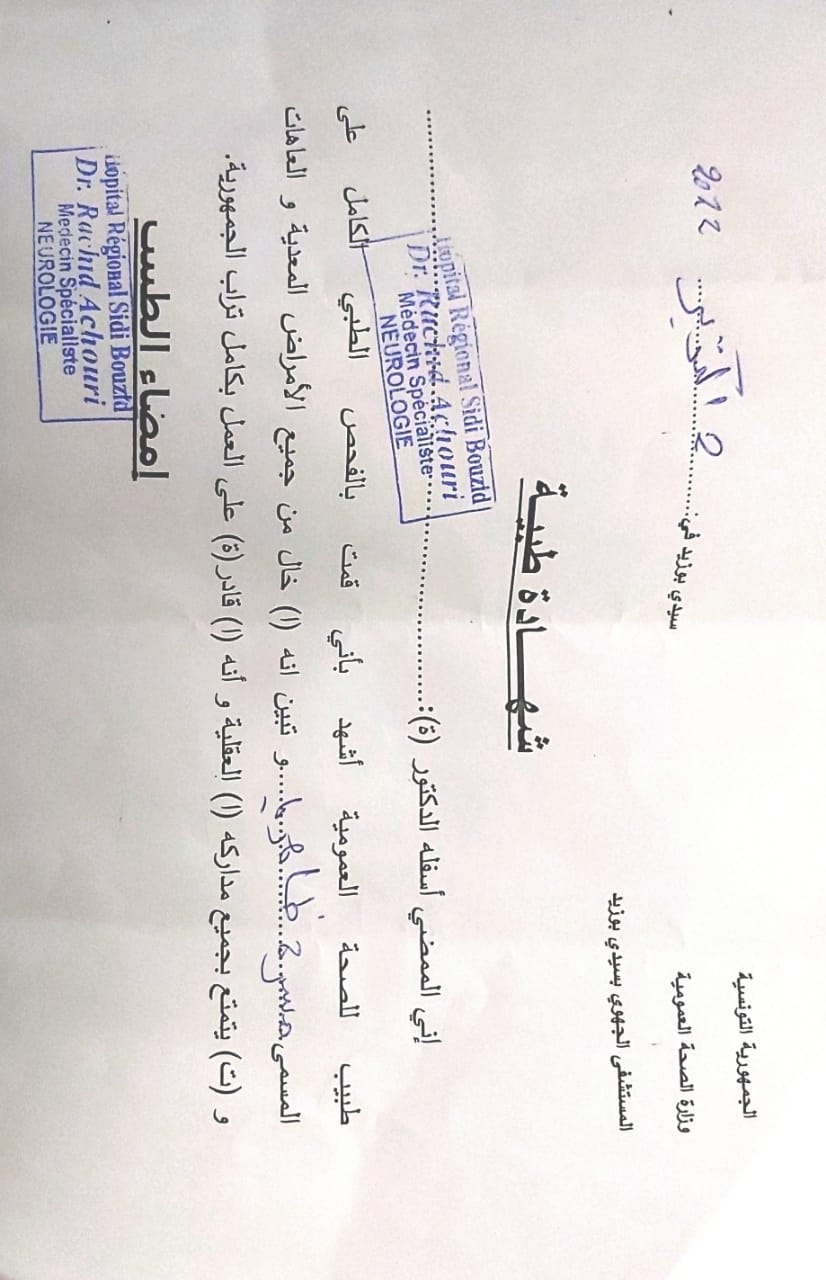 الجمهورية التونسية
وزارة الصحة العمومية
المستشفى الجهوي بسيدي بوزيد
سيدي بوزيد في: 2 أكتوبر 2022
شهـــادة طبيـة
إني الممضي أسفله الدكتور (ة):
Hopital Régional Sidi Bouzid
Dr. Rachid Achouri
Médecin Spécialiste
NEUROLOGIE
طبيب للصحة العمومية أشهد بأني قمت بالفحص الطبي الكامل على
المسمى و تبين انه (ا) خال من جميع الأمراض المعدية و العاهات
و (ت) يتمتع بجميع مداركه (ا) العقلية و أنه (ا) قادر (ة) على العمل بكامل تراب الجمهورية.
امضاء الطبيب
Hopital Régional Sidi Bouzid
Dr. Rachid Achouri
Medecin Spécialiste
NEUROLOGIE